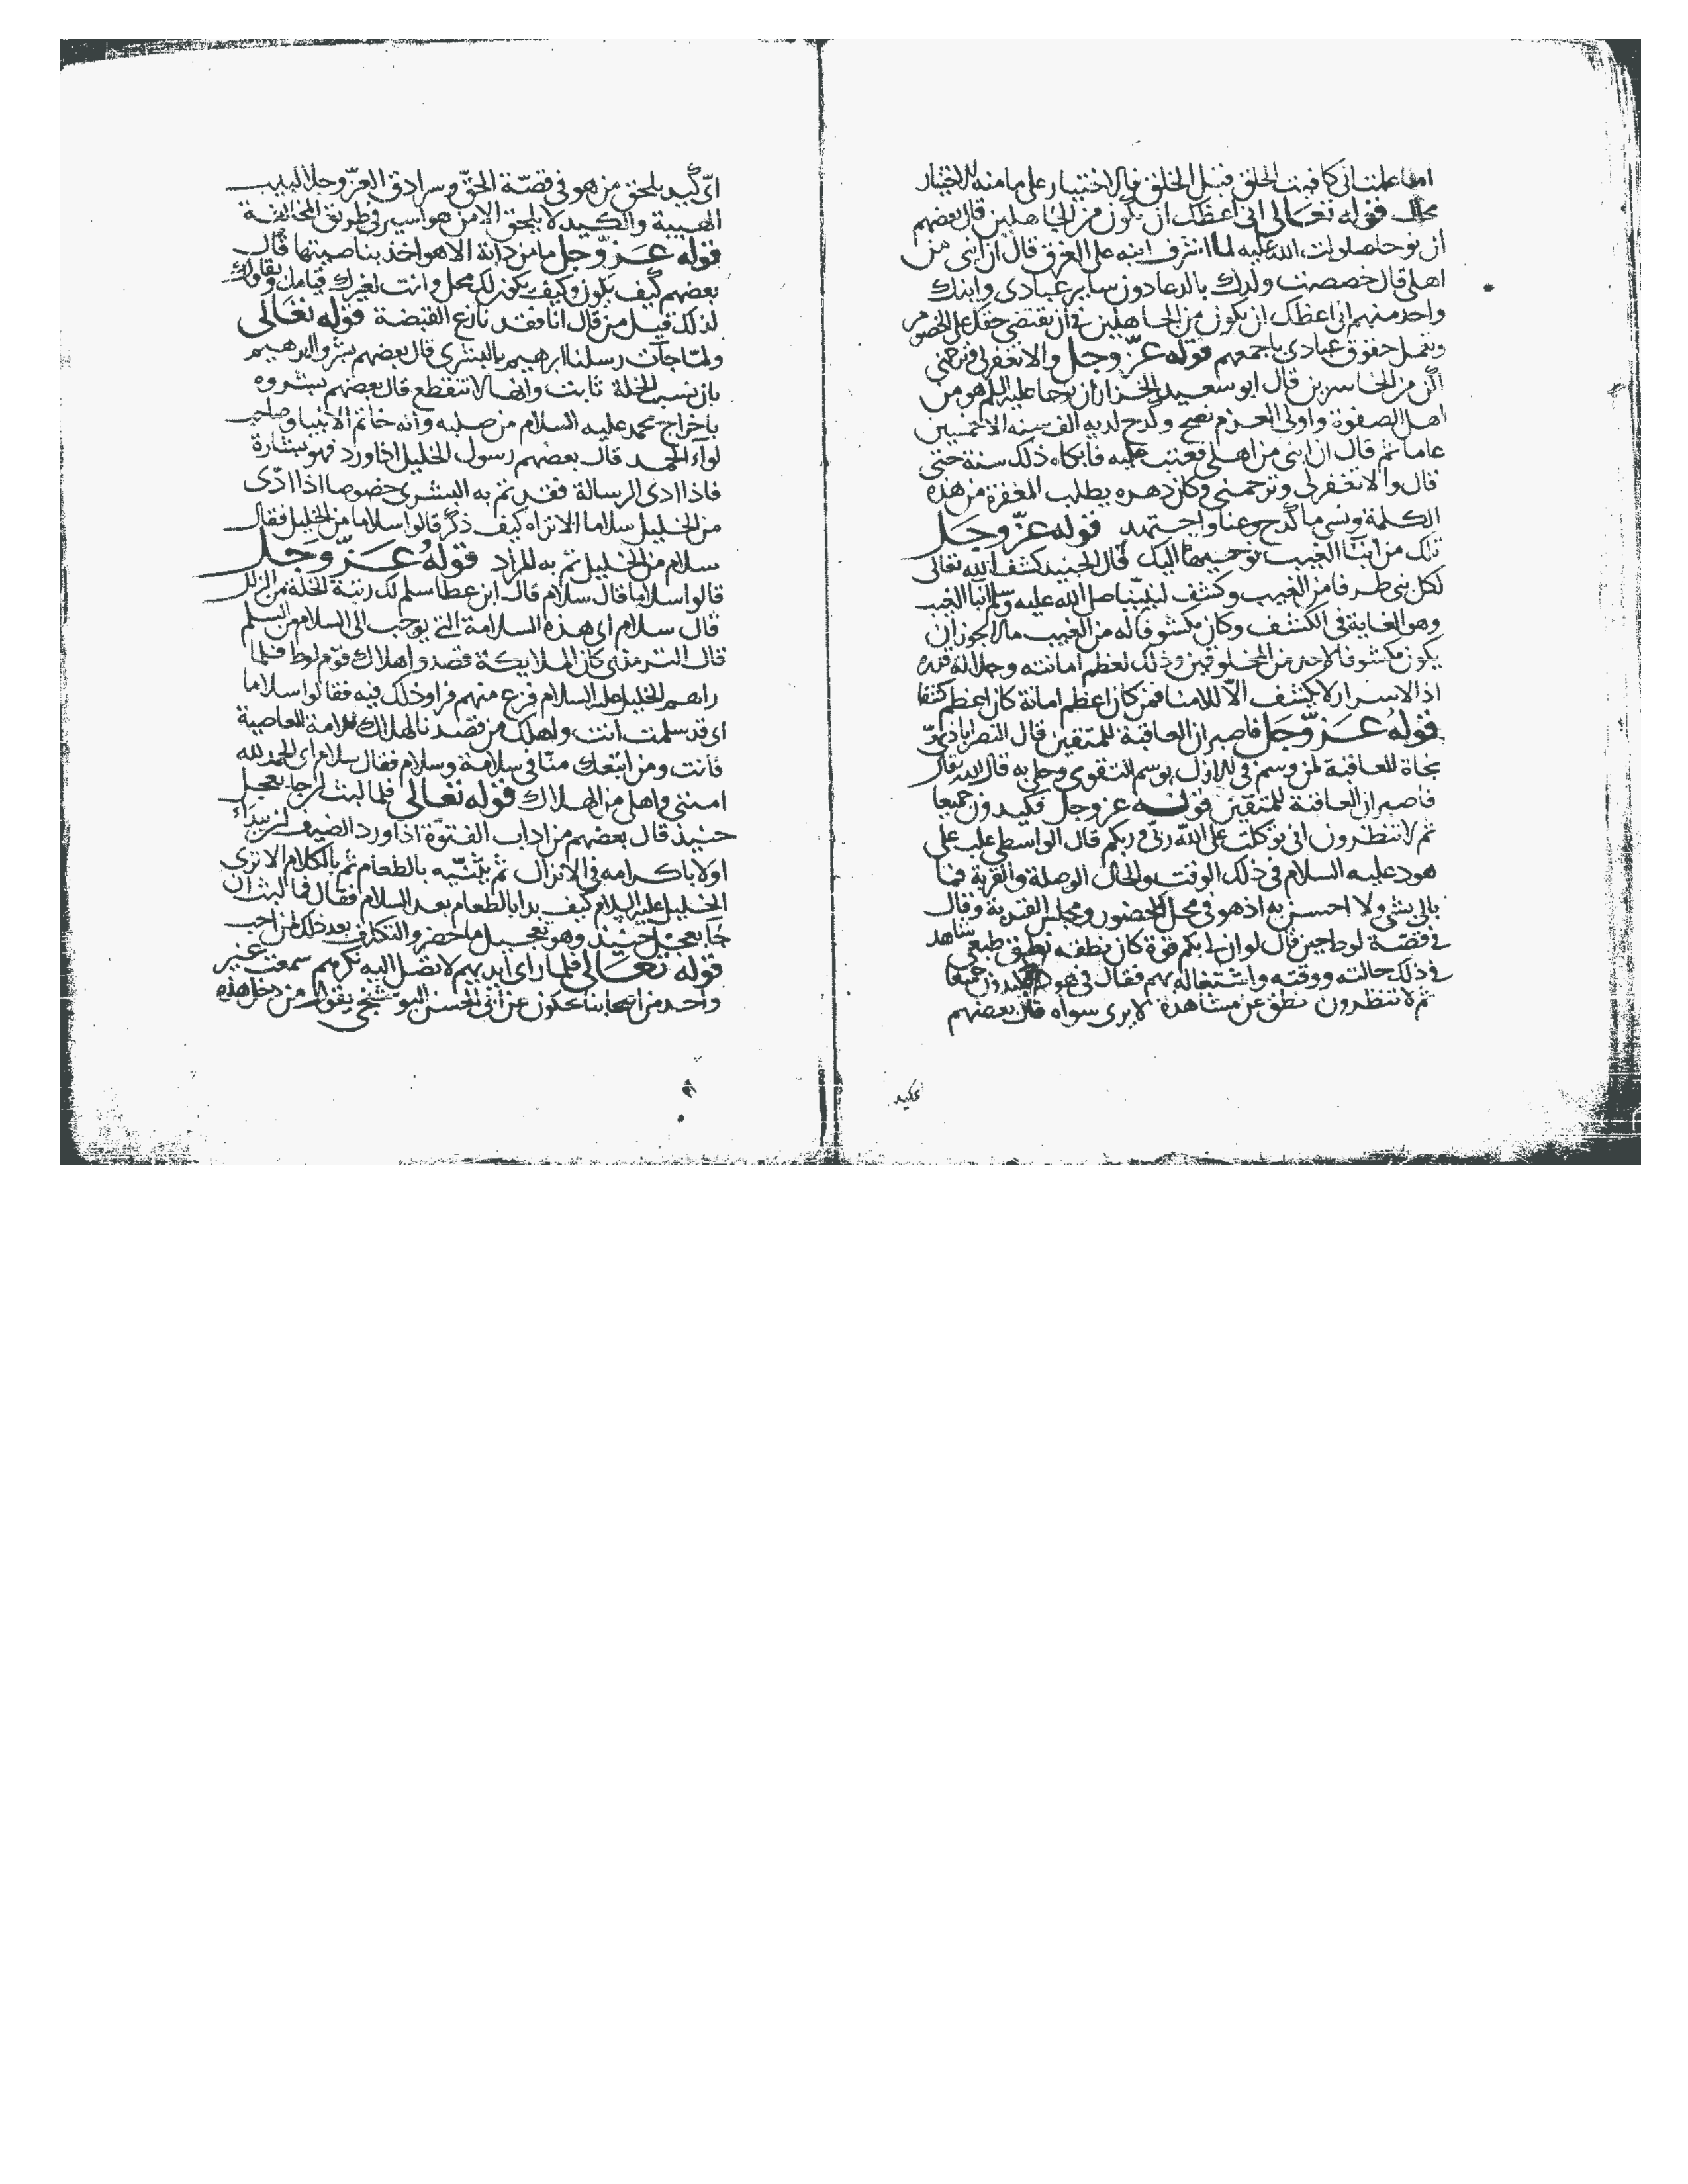 اما علمت انى كافيت الخلق قبل الخلق فالاختيار على ما منه الاختيار
محال قوله تعالى انى اعظك ان تكون من الجاهلين قال بعضهم
ان نوحا صلوات الله عليه لما اشرف ابنه على الغرق قال ان ابنى من
اهلى قال خصصت ولدك بالدعا دون ساير عبادى وابنك
واحد منهم انى اعظك ان تكون من الجاهلين فى ان تقتضى حقك على الخصوص
وتهمل حقوق عبادى باجمعهم قوله عز وجل والا تغفر لى وترحمنى
اكن من الخاسرين قال ابو سعيد الخراز ان نوحا عليه السلم هو من
اهل الصفوة واولى العزم نصح وكدح لديه الف سنة الا خمسين
عاما ثم قال ان ابنى من اهلى فعتب عليه فابكاه ذلك سنة حتى
قال والا تغفر لى وترحمنى وكان دهره يطلب المغفرة من هذه
الكلمة ونسى ما كدح وعنا واجتهد قوله عز وجل
تلك من انبا الغيب نوحيها اليك قال الجنيد كشف الله تعالى
لكل نبى طرفا من الغيب وكشف لنبينا صلى الله عليه وسلم انبا الغيب
وهو الغاية فى الكشف وكان مكشوفا له من الغيب ما لا يجوز ان
يكون مكشوفا لاحد من المخلوقين وذلك لعظم امانته وجلالة قدره
اذ الاسرار لا يكشف الا للامنا فمن كان اعظم امانة كان اعظم كشفا
قوله عز وجل فاصبر ان العاقبة للمتقين قال النصراباذى
نجاة للعاقبة لمن وسم فى الازل بوسم التقوى وحلى به قال الله تعالى
فاصبر ان العاقبة للمتقين قوله عز وجل فكيدون جميعا
ثم لا تنظرون انى توكلت على الله ربى وربكم قال الواسطى غلب على
هود عليه السلام فى ذلك الوقت والحال الوصلة والقربة فما
بالى بشى ولا احسن به اذ هو فى محل الحضور ومجلس القربة وقال
فى قصة لوط حين قال لو ان لى بكم قوة كان نطقه نطق طبعى شاهد
فى ذلك حالته ووقته واشتغاله بهم فقال فى هود فكيدون جميعا
ثم لا تنظرون نطق عن مشاهدة لا يرى سواه قال بعضهم
اى كيد يلحق من هو فى قبضة الحق وسرادق العز وجلاليب
الهيبة والكيد لا يلحق الا من هو اسير فى طريق المخالفة
قوله عز وجل ما من دابة الا هو اخذ بناصيتها قال
بعضهم كيف تكون وكيف يكون لك محل وانت لغيرك قيامك وبقاوك
لذلك قيل من قال انا فقد نازع القبضة قوله تعالى
ولما جات رسلنا ابرهيم بالبشرى قال بعضهم بشروا ابرهيم
بان نسب الخلة ثابت وانها لا تنقطع قال بعضهم بشروه
باخراج محمد عليه السلام من صلبه وانه خاتم الانبيا وصاحب
لواء الحمد قال بعضهم رسول الخليل اذا ورد فهو بشارة
فاذا ادى الرسالة فقد تم به البشرى خصوصا اذا ادى
من الخليل سلاما الا تراه كيف ذكر قالوا سلاما من الخليل فقال
سلام من الخليل تم به المراد قوله عز وجل
قالوا سلاما قال سلام قال ابن عطا سلم لك رتبة الخلة من الزلل
قال سلام اى هذه السلامة التى يوجب الى السلام من السلم
قال الترمذى كان الملايكة قصدوا هلاك قوم لوط فلما
راهم الخليل عليه السلام فزع منهم فراوا ذلك فيه فقالوا سلاما
اى قد سلمت انت ولهلك من قصدنا لهلاك الامة العاصية
فانت ومن اتبعك منا فى سلامة وسلام فقال سلام اى الحمد لله
امننى واهلى من الهلاك قوله تعالى فما لبث ان جا بعجل
حنيذ قال بعضهم من اداب الفتوة اذا ورد الضيف ان يبداء
اولا باكرامه فى الانزال ثم يثنيه بالطعام ثم بالكلام الا ترى
الخليل عليه السلام كيف بدا بالطعام بعد السلام فقال فما لبث ان
جا بعجل حنيذ وهو تعجيل ما حضر والتكلف بعد ذلك لمن احب
قوله تعالى فلما راى ايديهم لا تصل اليه نكرهم سمعت غير
واحد من اصحابنا يحكون عن ابى الحسن البوشنجى يقول من دخل هذه